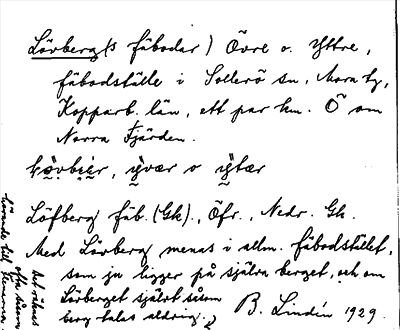 Lövberg(s fäbodar) Övre o. Yttre,
fäbodställe i Sollerö sn, Mora tg,
Kopparb. län, ett par km. Ö om
Norra Fjärden.
Löfberg fäb. (Gk)., Öfr., Nedr. Gk.
Med Lövberg menas i allm. fäbodstället,
som ju ligger på själva berget, och om
Lövberget självt såsom
berg talas aldrig.
B. Lindén 1929.
Det räknas
ofta såsom
hörande till